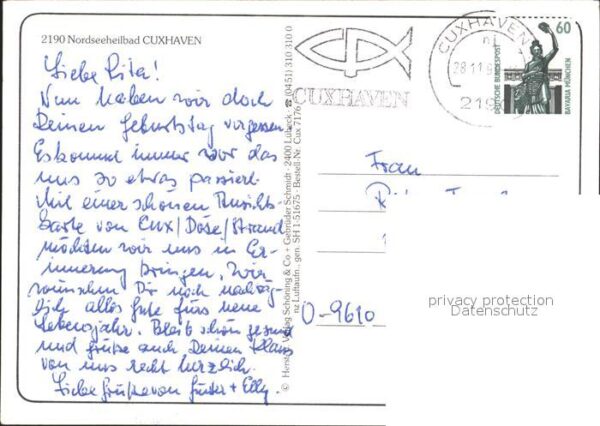 2190 Nordseeheilbad CUXHAVEN
Liebe Rita!
Nun haben wir doch
Deinen Geburtstag vergessen
Es kommt immer vor das
uns so etwas passiert.
Mit einer schönen Ansichts-
karte von Cux/Döse/Strand
möchten wir uns in Er-
innerung bringen. Wir
wünschen Dir noch nachträg-
lich alles Gute fürs neue
Lebensjahr. Bleib schön gesund
und grüße auch Deinen Klaus
von uns recht herzlich.
Liebe Grüße von Günter + Elly.
© Herst. u. Verlag Schöning & Co + Gebrüder Schmidt · 2400 Lübeck · ☎ (0451) 310 310 0
nz Luftaufn., gen. SH 1-51675 · Bestell-Nr. Cux 7176
CUXHAVEN
CUXHAVEN
28.11.9
219
60
DEUTSCHE BUNDESPOST
BAVARIA MÜNCHEN
Frau
O-9610
privacy protection
Datenschutz